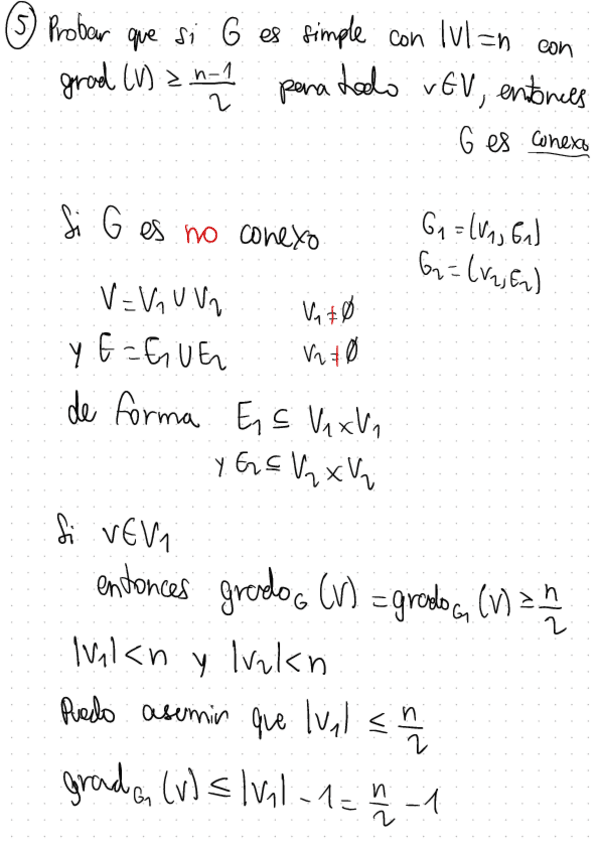 ⑤ Probar que si G es simple con |V|=n con
grad (V) ≥ n-1/2 para todo v∈V, entonces
G es conexo
Si G es no conexo
G₁=(V₁,E₁)
G₂=(V₂,E₂)
V=V₁∪V₂
V₁≠∅
y E=E₁∪E₂
V₂≠∅
de forma E₁⊆V₁×V₁
y E₂⊆V₂×V₂
Si v∈V₁
entonces grado_G (V) = grado_G₁ (V) ≥ n/2
|V₁|<n y |V₂|<n
Puedo asumir que |V₁| ≤ n/2
grad_G₁ (V) ≤ |V₁| - 1 = n/2 - 1